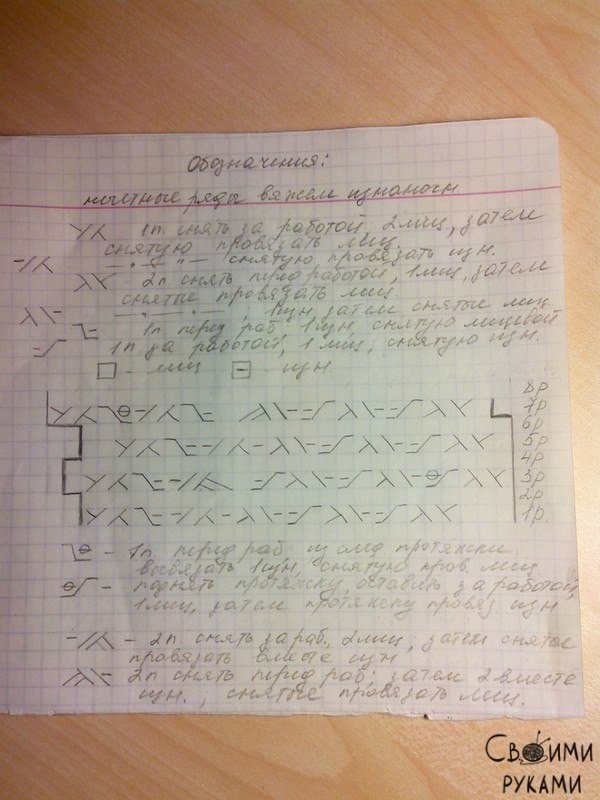 Обозначения:
нечетные ряды вяжем изнаночн
1п. снять за работой, 2лиц, затем
снятую провязать лиц.
—"— "— снятую провязать изн.
2п снять перед работой, 1лиц, затем
снятые провязать лиц.
1изн, затем снятые лиц.
1п. перед раб, 1изн, снятую лицевой
1п за работой, 1лиц, снятую изн.
- лиц - изн.
8р
7р
6р
5р
4р
3р
2р
1р.
- 1п. перед раб. из след протяжки
вывязать 1изн, снятую пров. лиц
- поднять протяжку, оставить за работой,
1лиц, затем протяжку провяз. изн
- 2п. снять за раб., 2лиц, затем снятые
провязать вместе изн
2п снять перед раб, затем 2вместе
изн., снятые провязать лиц.
Своими
руками